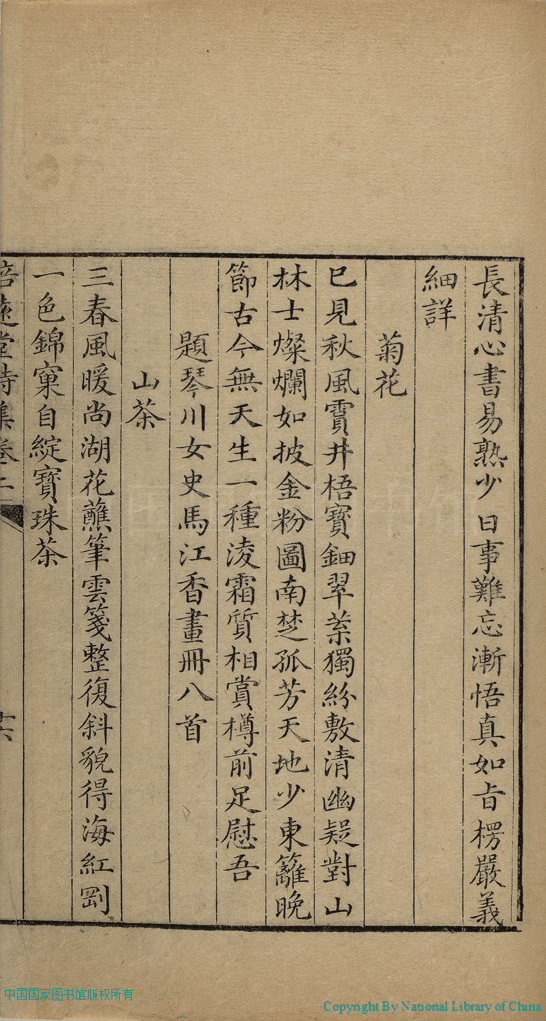 長清心書易熟少日事難忘漸悟真如旨楞嚴義
細詳
菊花
已見秋風霣井梧寶鈿翠葉獨紛敷清幽疑對山
林士燦爛如披金粉圖南楚孤芳天地少東籬晚
節古今無天生一種淩霜質相賞樽前足慰吾
題琴川女史馬江香畫冊八首
山茶
三春風暖尚湖花蘸筆雲箋整復斜貌得海紅剛
一色錦窠自綻寶珠茶
培遠堂詩集卷二
十六
中国国家图书馆版权所有
Copyright By National Library of China